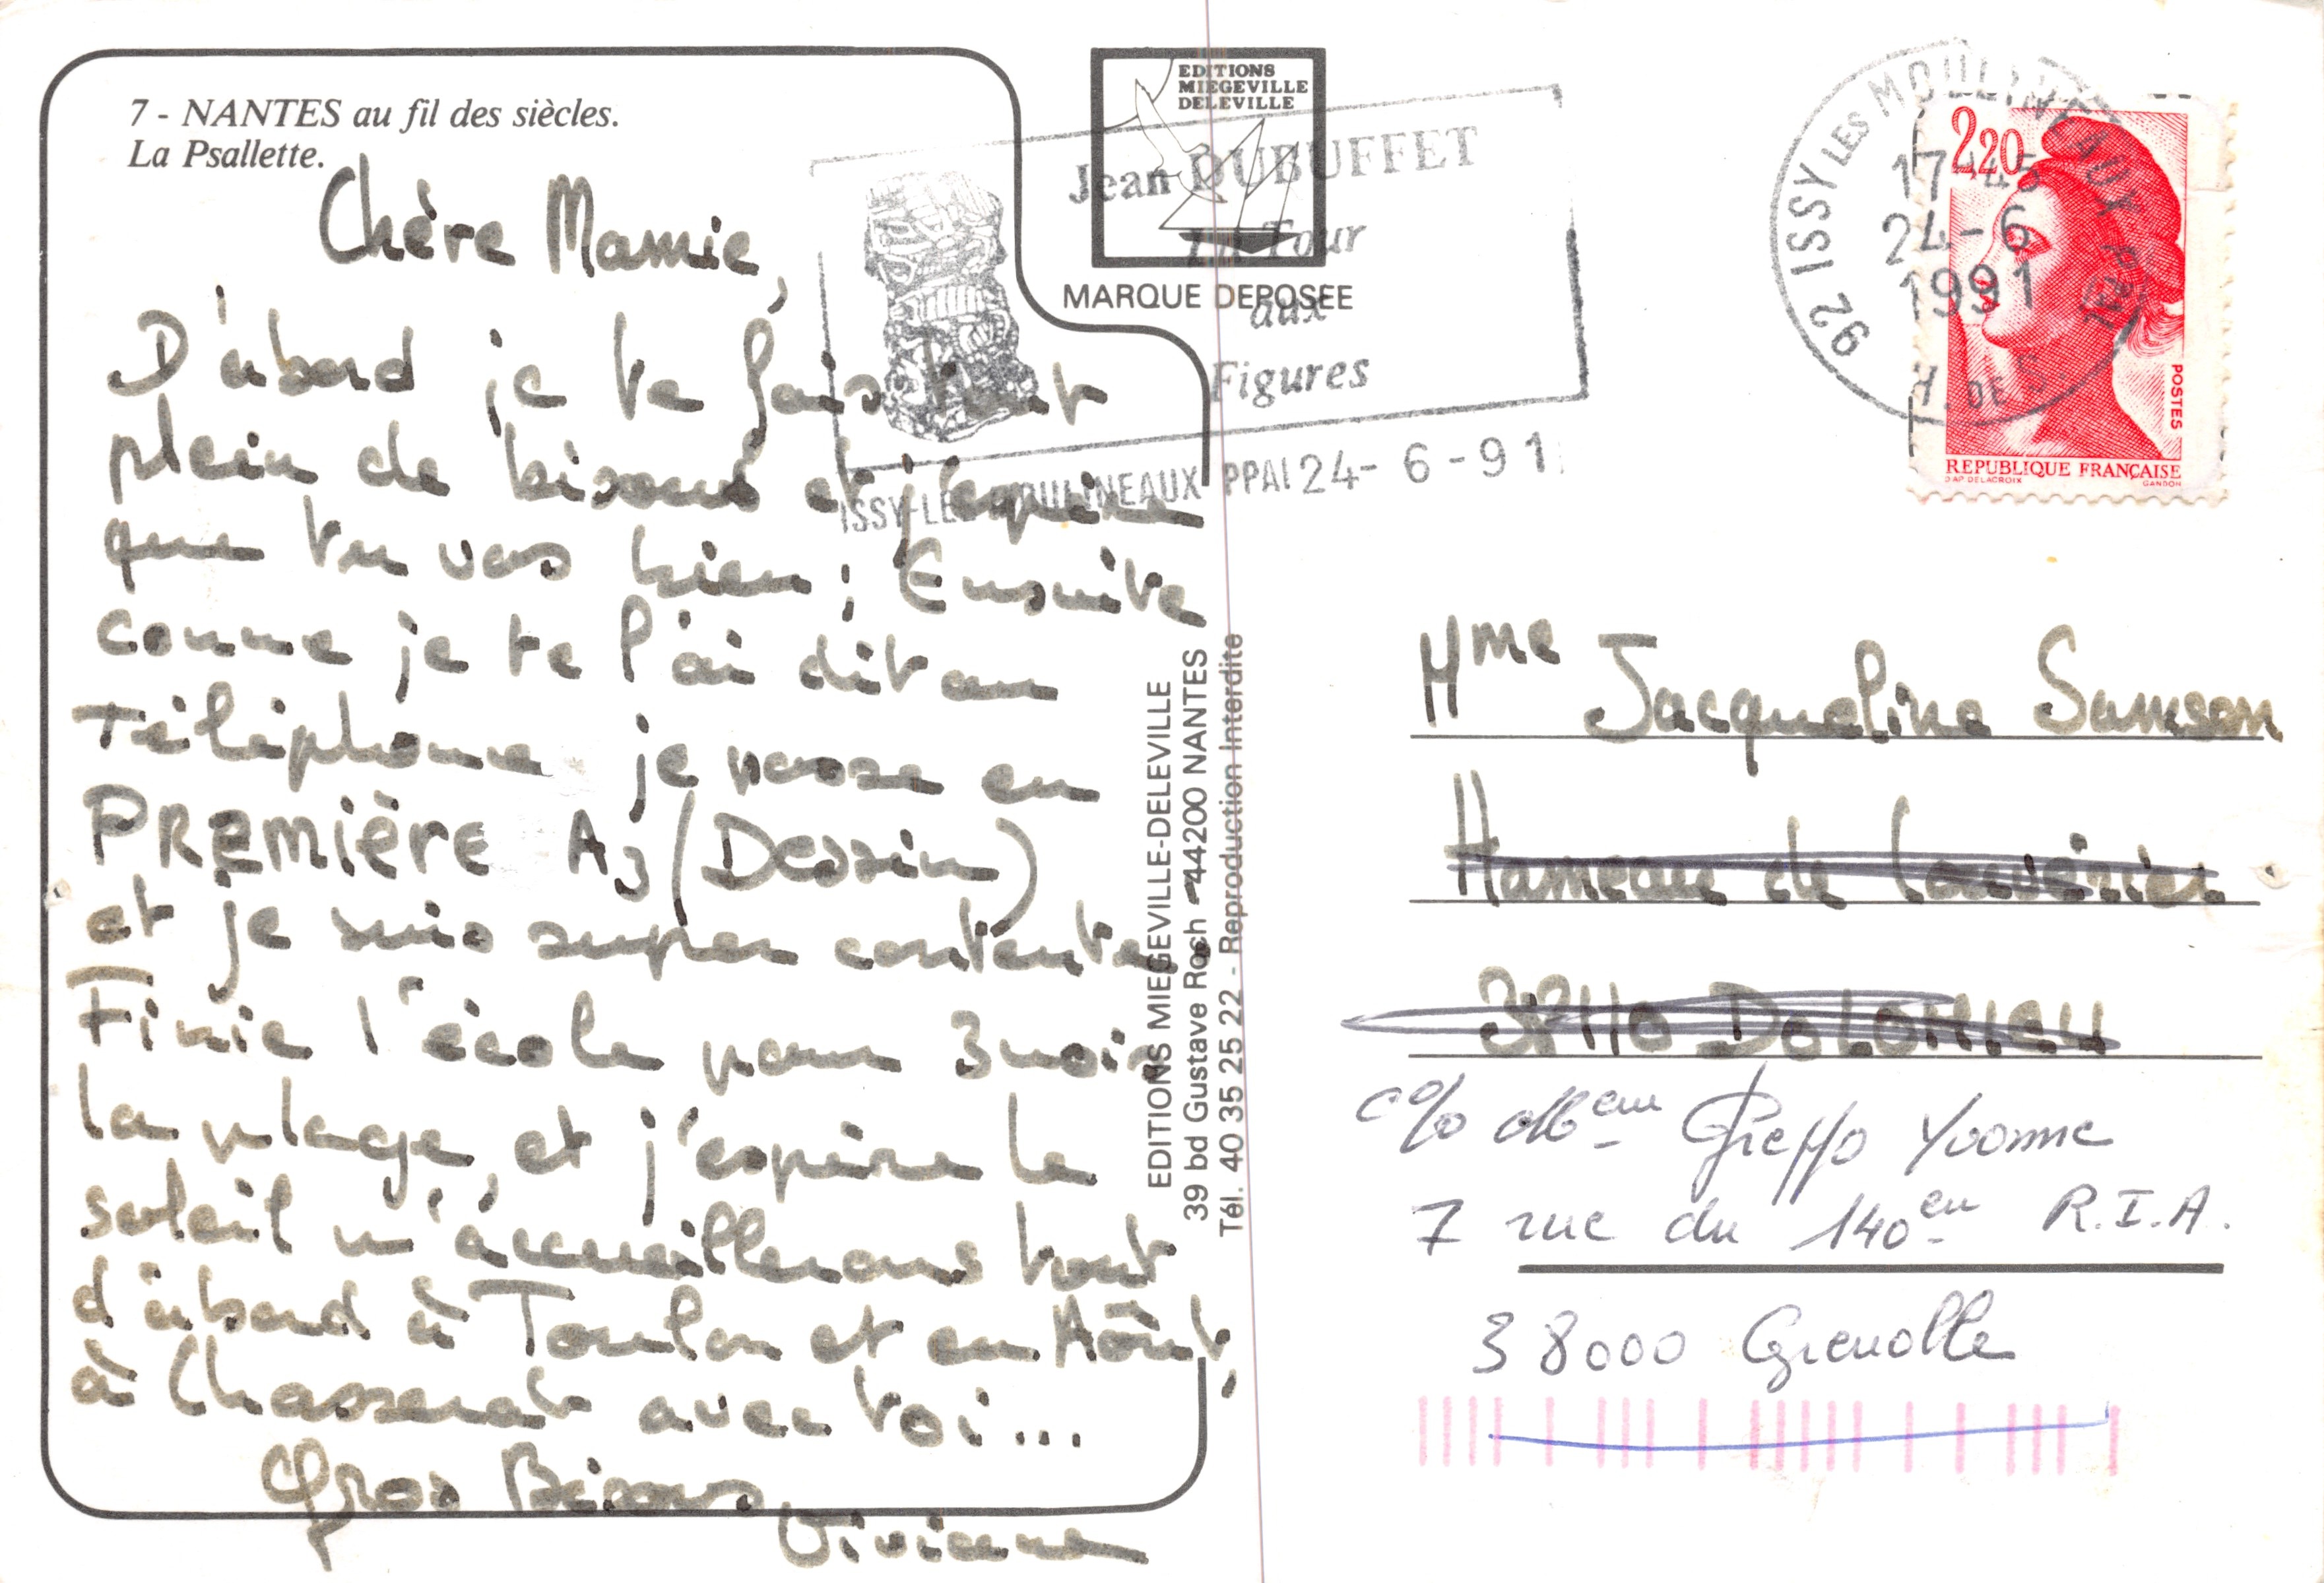 7 - NANTES au fil des siècles.
La Psallette.
Chère Mamie,
D'abord je te fais tout
plein de bisous et j'espère
que tu vas bien; Ensuite
comme je te l'ai dit au
Téléphone je passe en
PREMIÈRE A3 (Dessin)
et je suis super contente.
Finie l'école pour 3 mois
la plage, et j'espère le
soleil m'accueillerons tout
d'abord à Toulon et en Août,
à Chasserat avec toi...
Gros Bisous
Vivianne
EDITIONS
MIEGEVILLE
DELEVILLE
MARQUE DEPOSEE
Jean DUBUFFET
La Tour
aux
Figures
ISSY-LES-MOULINEAUX PPAL 24- 6 -91
EDITIONS MIEGEVILLE-DELEVILLE
39 bd Gustave Roch - 44200 NANTES
Tél. 40 35 25 22 - Reproduction Interdite
92 ISSY LES MOULINEAUX PPAL
17-45
24-6
1991
H. DE S
2,20
POSTES
REPUBLIQUE FRANÇAISE
DAP DELACROIX GANDON
Mme Jacqueline Samson
Hameau de
38110 DOLOMIEU
c% Mme Greppo Yvonne
7 rue du 140em R.I.A.
38000 Grenoble